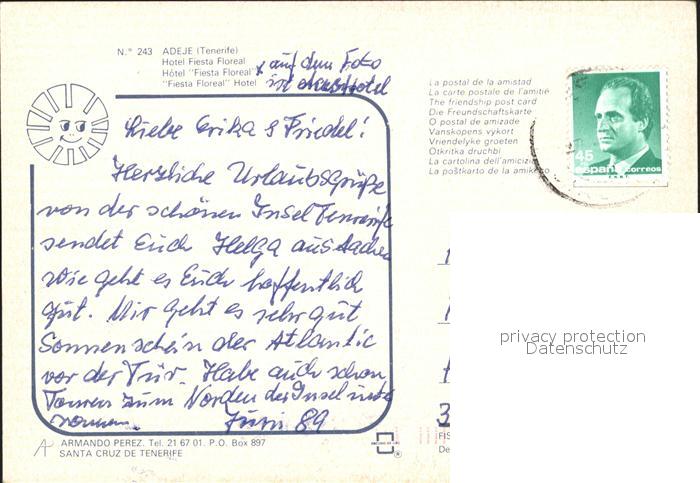 N.° 243 ADEJE (Tenerife)
Hotel Fiesta Floreal
Hôtel "Fiesta Floreal"
"Fiesta Floreal" Hotel
x auf dem Foto
ist Hotel
La postal de la amistad
La carte postale de l'amitié
The friendship post card
Die Freundschaftskarte
O postal de amizade
Vanskopens vykort
Vriendelyke groeten
Otkritka druchbi
La cartolina dell'amicizia
La poštkarto de la amikeco
45
españa correos
Liebe Erika & Friedel!
Herzliche Urlaubsgrüße
von der schönen Insel Teneriffa
sendet Euch Helga aus Aachen
Wie geht es Euch hoffentlich
gut. Mir geht es sehr gut
Sonnenschein der Atlantic
vor der Tür. Habe auch schon
Touren zum Norden der Insel unter
nommen. Juni 89
privacy protection
Datenschutz
3
ARMANDO PEREZ. Tel. 21 67 01. P.O. Box 897
SANTA CRUZ DE TENERIFE
FIS
De